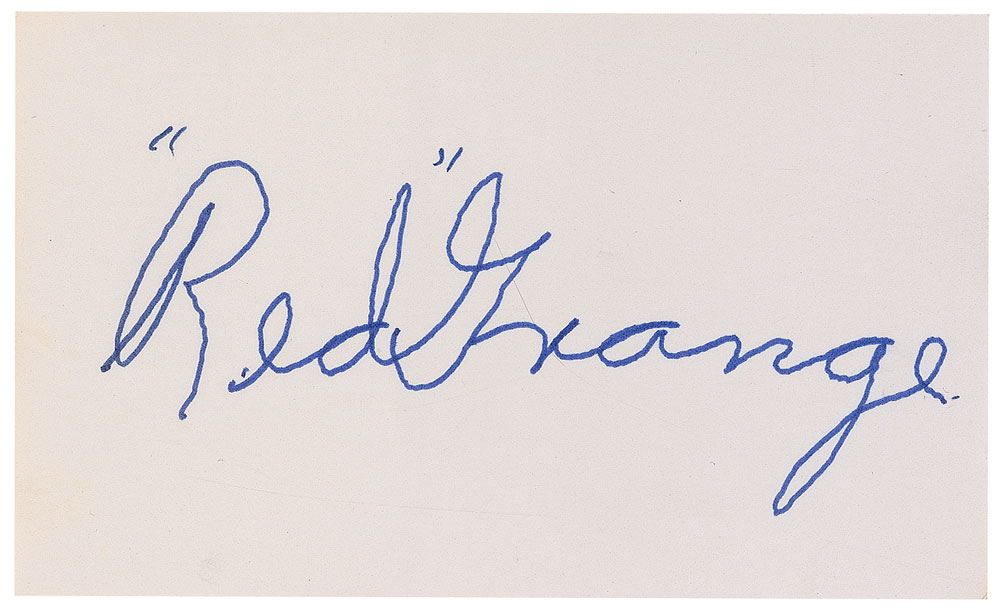 "Red" Grange